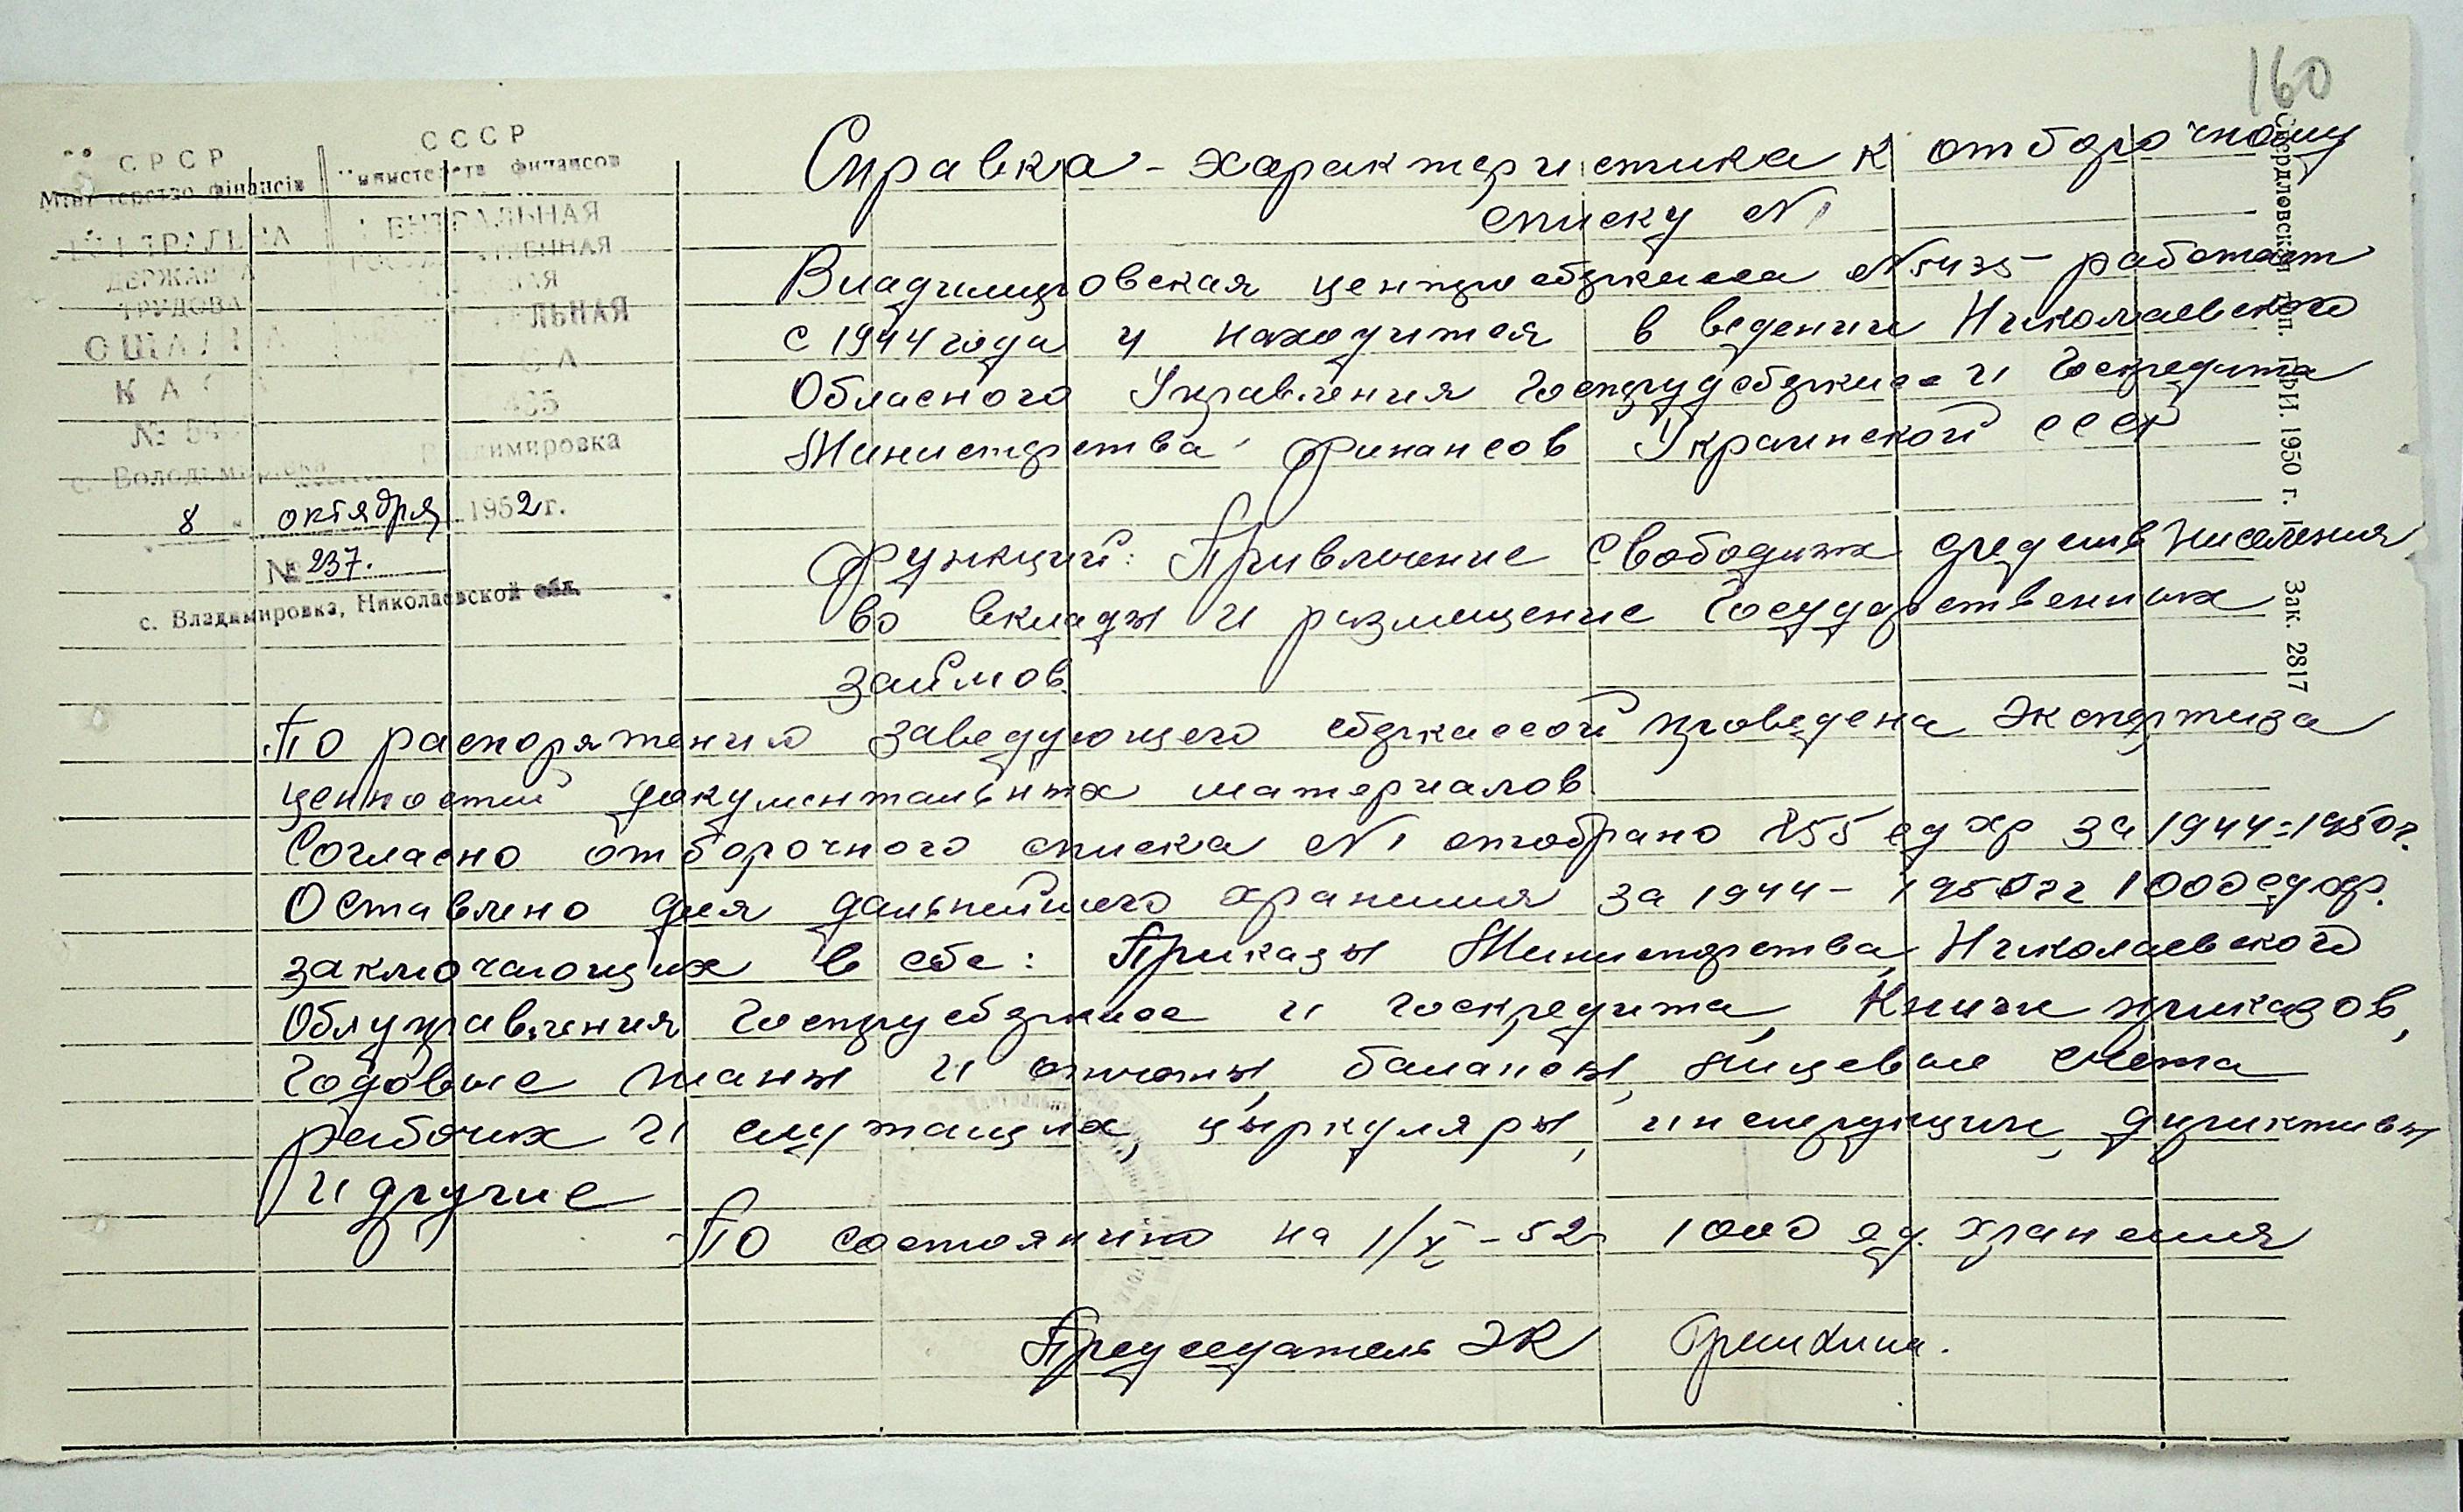 160
СРСР
Міністерство фінансів
ЦЕНТРАЛЬНА
ДЕРЖАВНА
ТРУДОВА
ОЩАДНА
КАСА
№
с. Володимирівка
СССР
Министерств финансов
ЦЕНТРАЛЬНАЯ
ГОСУДАРСТВЕННАЯ
ЛЬНАЯ
СА
Владимировка
8 октября 1952 г.
№ 237.
с. Владимировка, Николаевской обл.
Справка - характеристика к отборочному
списку №1
Владимировская центрсберкасса №5435 работает
с 1944 года и находится в ведении Николаевского
Обласного Управления Гострудсберкасс и Госкредита
Министерства финансов Украинской ССР
функций: Привлечение свободных средств населения
во вклады и размещение Государственных
займов.
По распоряжению заведующего сберкассой проведена экспертиза
ценностей документальных материалов.
Согласно отборочного списка №1 отобрано 255 ед хр за 1944-1950г.
Оставлено для дальнейшего хранения за 1944 - 1950гг 1000 ед хр.
заключающих в себе: Приказы Министерства, Николаевского
Облуправления Гострусберкасс и госкредита, Книги приказов,
Годовые планы и отчеты, балансы, лицевые счета
рабочих и служащих, цыркуляры, инструкции, дириктивы
и другие
По состоянию на 1/X - 52г 1000 ед. хранения
Председатель ЭК
Свердловская тип. ГБИ. 1950 г. Зак. 2817